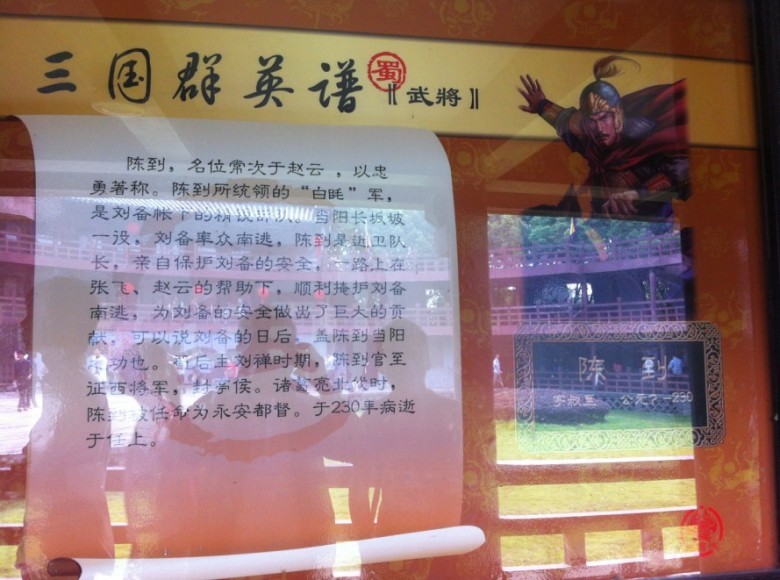 三国群英谱 蜀 《武將》
陈到，名位常次于赵云，以忠
勇著称。陈到所统领的“白眊”军，
是刘备帐下的精锐部队。当阳长坂坡
一役，刘备率众南逃，陈到是近卫队
长，亲自保护刘备的安全，一路上在
张飞、赵云的帮助下，顺利掩护刘备
南逃，为刘备的安全做出了巨大的贡
献，可以说刘备的日后，盖陈到当阳
之功也。蜀后主刘禅时期，陈到官至
征西将军，封亭侯。诸葛亮北伐时，
陈到被任命为永安都督。于230年病逝
于任上。
陈到
字叔至 公元？—230